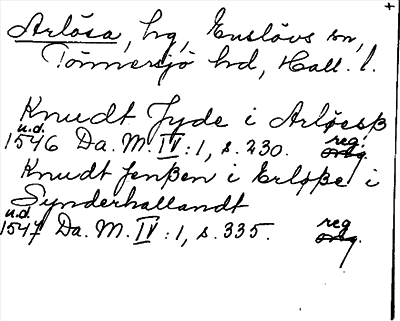 Arlösa, hg, Enslövs sn,
Tönnersjö hd, Hall. l.
Knudt Jyde i Arløesß
u.d. reg.
1546 Da. M. IV:1, s. 230. orig.
Knudt Jenßen i Erløße i
Synderhallandt
u.d. reg
1547 Da. M. IV:1, s. 335. orig.